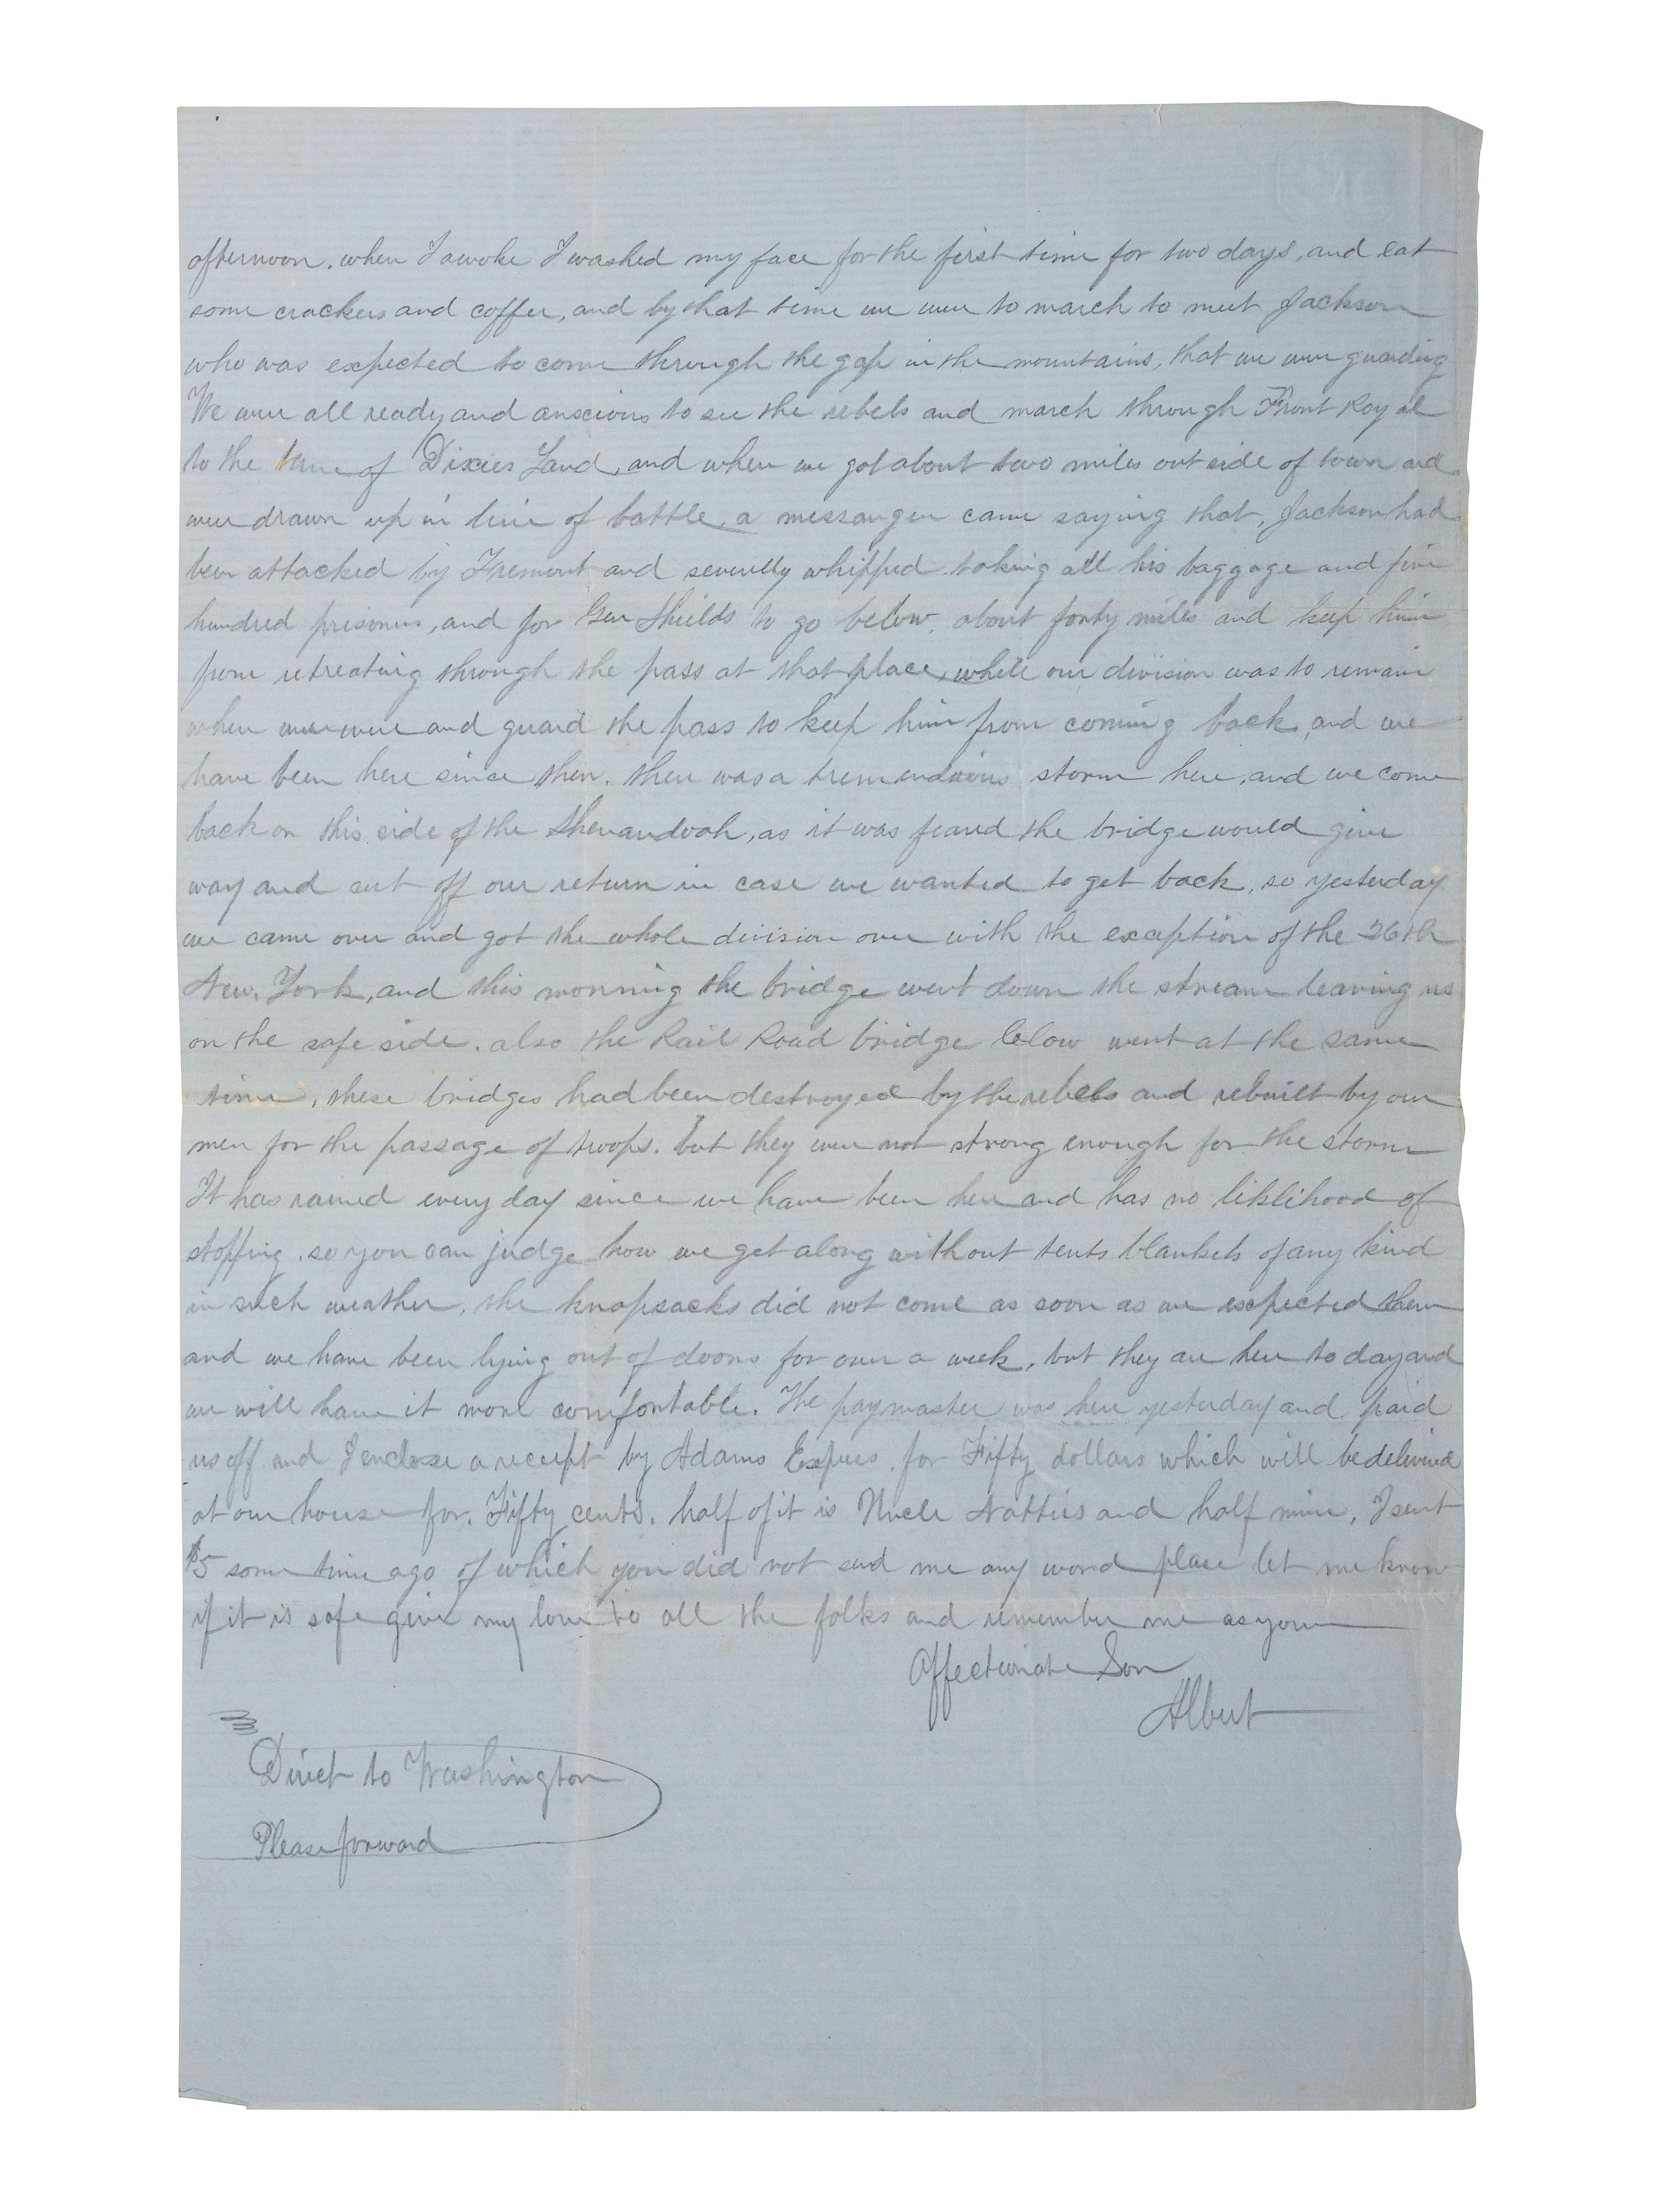 afternoon. when I awoke I washed my face for the first time for two days, and eat
some crackers and coffee, and by that time we were to march to meet Jackson
who was expected to come through the gap in the mountains, that we were guarding
We were all ready and anscious to see the rebels and march through Front Royal
to the tune of Dixies Land, and when we got about two miles out side of town and
were drawn up in line of battle, a messanger came saying that, Jackson had
been attacked by Fremont and severelly whipped taking all his baggage and five
hundred prisoners, and for Gen Shields to go below, about forty miles and keep him
from retreating through the pass at that place, while our division was to remain
where we were and guard the pass to keep him from coming back, and we
have been here since then. there was a storm here, and we come
back on this side of the Shenandoah, as it was feared the bridge would give
way and cut off our return in case we wanted to get back, so yesterday
we came over and got the whole division over with the exception of the 26th
New. York, and this morning the bridge went down the stream leaving us
on the safe side. also the Rail Road bridge below went at the same
time, these bridges had been destroyed by the rebels and rebuilt by our
men for the passage of troops. but they were not strong enough for the storm
It has rained every day since we have been here and has no liklihood of
stopping. so you can judge how we get along without tents blankets of any kind
in such weather, the knapsacks did not come as soon as we expected them
and we have been lying out of doors for over a week, but they are here to day and
we will have it more comfortable. The paymaster was here yesterday and paid
us off and I enclose a receipt by Adams Express for Fifty dollars which will be delivered
at our house for. Fifty cents. half of it is Uncle Natties and half mine, I sent
$5 some time ago of which you did not send me any word please let me know
if it is safe give my love to all the folks and remember me as your
Affectionate Son
Albert
Direct to Washington
Please forward